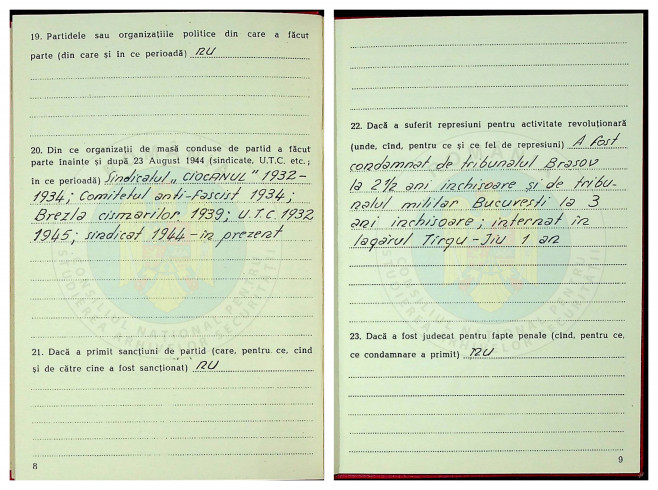 19. Partidele sau organizațiile politice din care a făcut
parte (din care și în ce perioadă) NU
20. Din ce organizații de masă conduse de partid a făcut
parte înainte și după 23 August 1944 (sindicate, U.T.C. etc.;
în ce perioadă) Sindicatul „CIOCANUL" 1932-
1934; Comitetul anti-fascist 1934;
Brezla cismarilor 1939; U.T.C. 1932
1945; sindicat 1944-in prezent
21. Dacă a primit sancțiuni de partid (care, pentru ce, cînd
și de către cine a fost sancționat) NU
8
22. Dacă a suferit represiuni pentru activitate revoluționară
(unde, cînd, pentru ce și ce fel de represiuni) A fost
condamnat de tribunalul Brasov
la 2 1/2 ani inchisoare și de tribu-
nalul militar Bucuresti la 3
ani inchisoare; internat in
lagărul Tîrgu-Jiu 1 an
23. Dacă a fost judecat pentru fapte penale (cînd, pentru ce,
ce condamnare a primit) NU
9
CONSILIUL NAȚIONAL PENTRU
STUDIEREA ARHIVELOR SECURITĂȚII